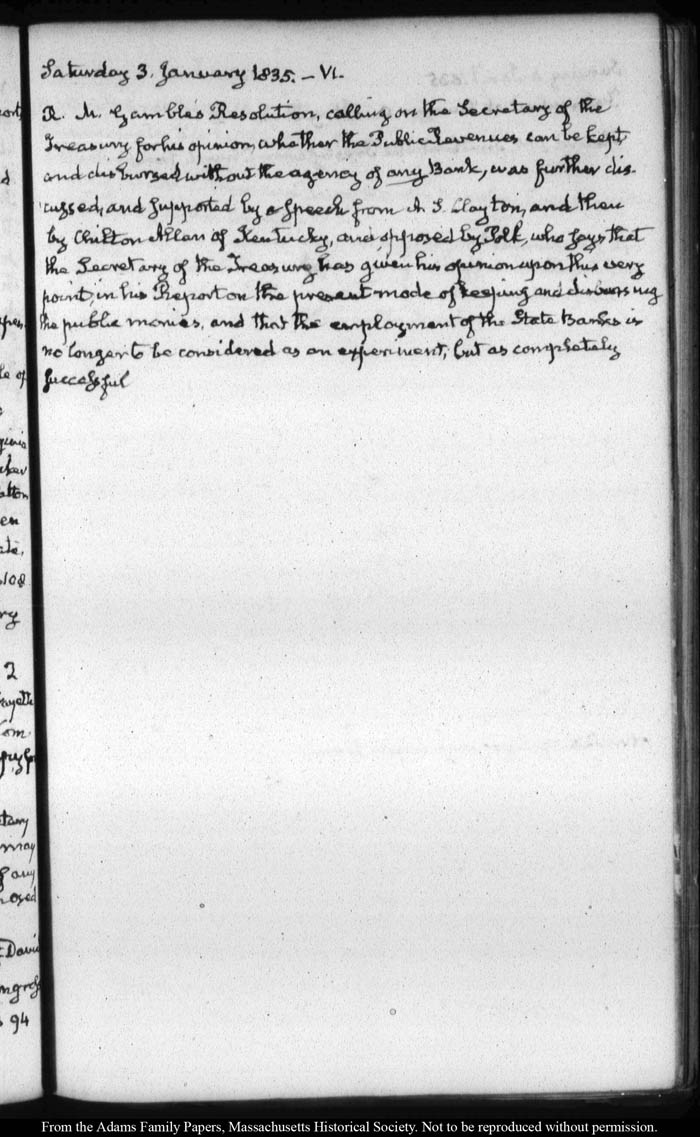 Saturday 3. January 1835. – VI.
R. M. Gamble's Resolution, calling on the Secretary of the
Treasury for his opinion, whether the Public Revenues can be kept,
and disbursed without the agency of any Bank, was further dis-
cussed, and supported by a speech from A. S. Clayton, and then
by Chilton Allan of Kentucky, and opposed by Polk, who says that
the Secretary of the Treasury has given his opinion upon this very
point, in his Report on the present mode of keeping and disbursing
the public monies, and that the employment of the State Banks is
no longer to be considered as an experiment, but as completely
successful
le of
en
108
ry
2
may
94
From the Adams Family Papers, Massachusetts Historical Society. Not to be reproduced without permission.